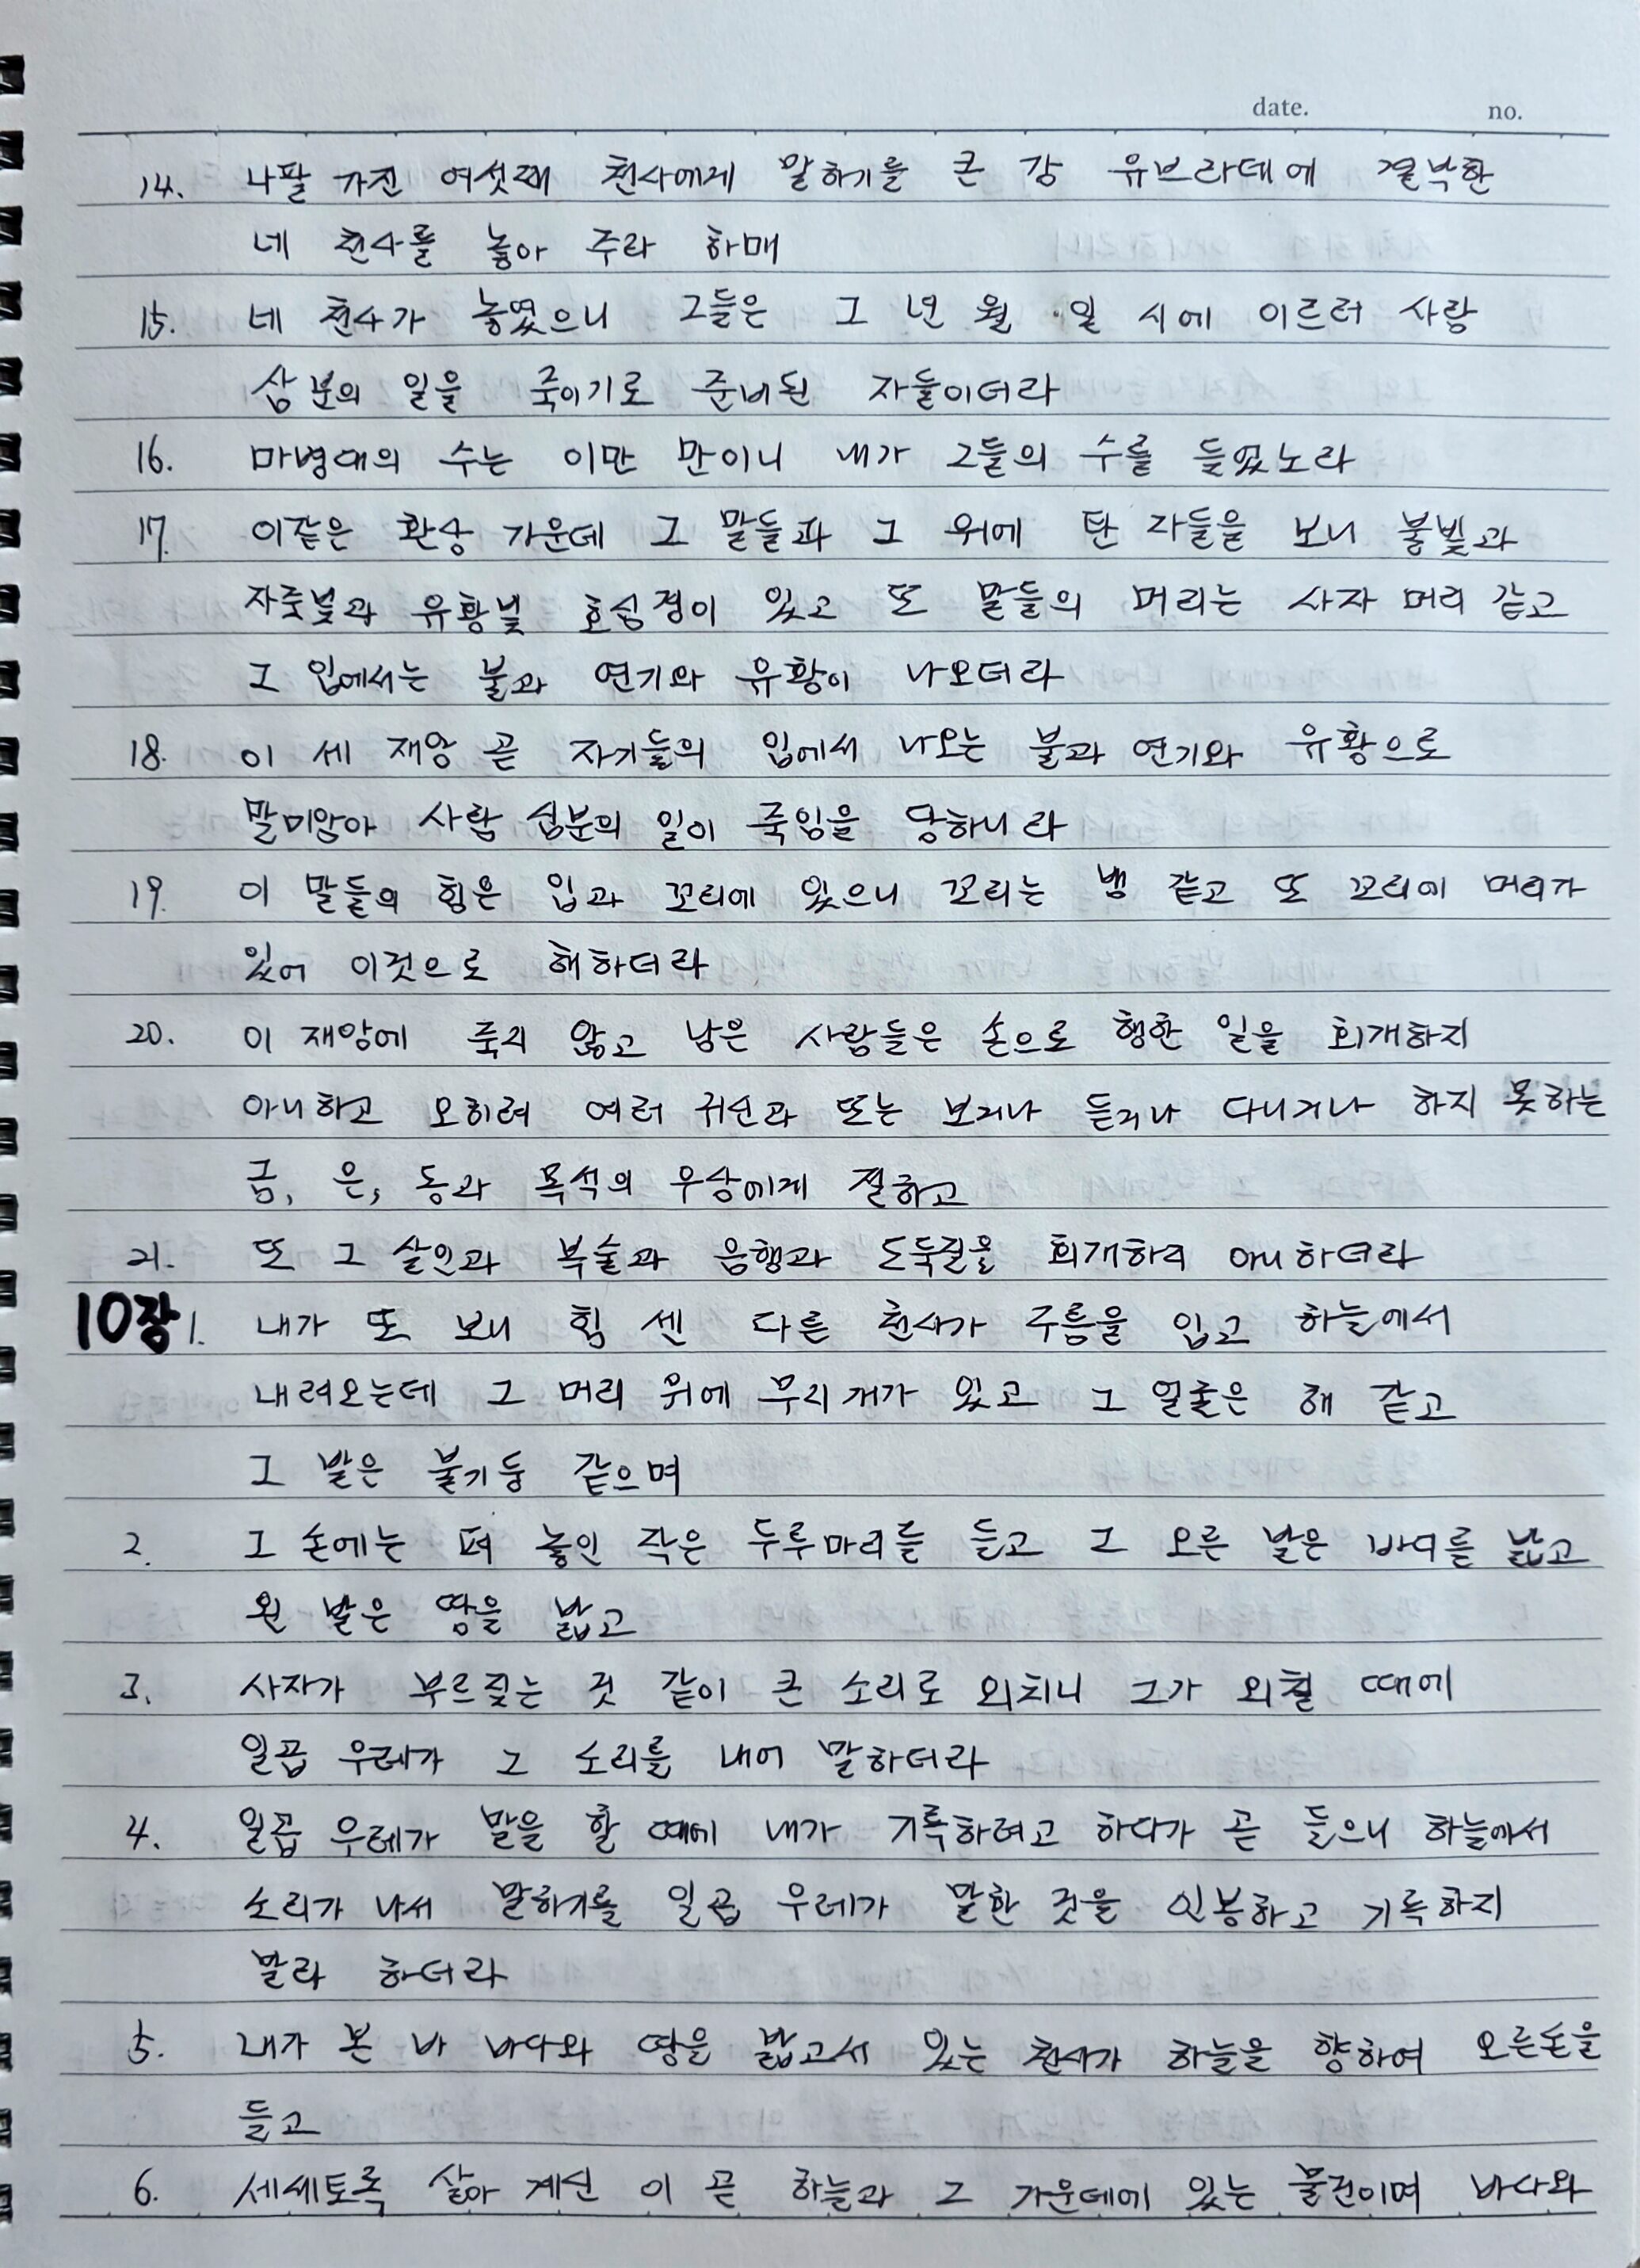 date. no.
14. 나팔 가진 여섯째 천사에게 말하기를 큰 강 유브라데에 결박한
네 천사를 놓아 주라 하매
15. 네 천사가 놓였으니 그들은 그 년 월 일 시에 이르러 사람
삼분의 일을 죽이기로 준비된 자들이더라
16. 마병대의 수는 이만 만이니 내가 그들의 수를 들었노라
17. 이같은 환상 가운데 그 말들과 그 위에 탄 자들을 보니 불빛과
자줏빛과 유황빛 호심경이 있고 또 말들의 머리는 사자 머리 같고
그 입에서는 불과 연기와 유황이 나오더라
18. 이 세 재앙 곧 자기들의 입에서 나오는 불과 연기와 유황으로
말미암아 사람 삼분의 일이 죽임을 당하니라
19. 이 말들의 힘은 입과 꼬리에 있으니 꼬리는 뱀 같고 또 꼬리에 머리가
있어 이것으로 해하더라
20. 이 재앙에 죽지 않고 남은 사람들은 손으로 행한 일을 회개하지
아니하고 오히려 여러 귀신과 또는 보거나 듣거나 다니거나 하지 못하는
금, 은, 동과 목석의 우상에게 절하고
21. 또 그 살인과 복술과 음행과 도둑질을 회개하지 아니하더라
10장 1. 내가 또 보니 힘 센 다른 천사가 구름을 입고 하늘에서
내려오는데 그 머리 위에 무지개가 있고 그 얼굴은 해 같고
그 발은 불기둥 같으며
2. 그 손에는 펴 놓인 작은 두루마리를 들고 그 오른 발은 바다를 밟고
왼 발은 땅을 밟고
3. 사자가 부르짖는 것 같이 큰 소리로 외치니 그가 외칠 때에
일곱 우레가 그 소리를 내어 말하더라
4. 일곱 우레가 말을 할 때에 내가 기록하려고 하다가 곧 들으니 하늘에서
소리가 나서 말하기를 일곱 우레가 말한 것을 인봉하고 기록하지
말라 하더라
5. 내가 본 바 바다와 땅을 밟고서 있는 천사가 하늘을 향하여 오른손을
들고
6. 세세토록 살아 계신 이 곧 하늘과 그 가운데에 있는 물건이며 바다와